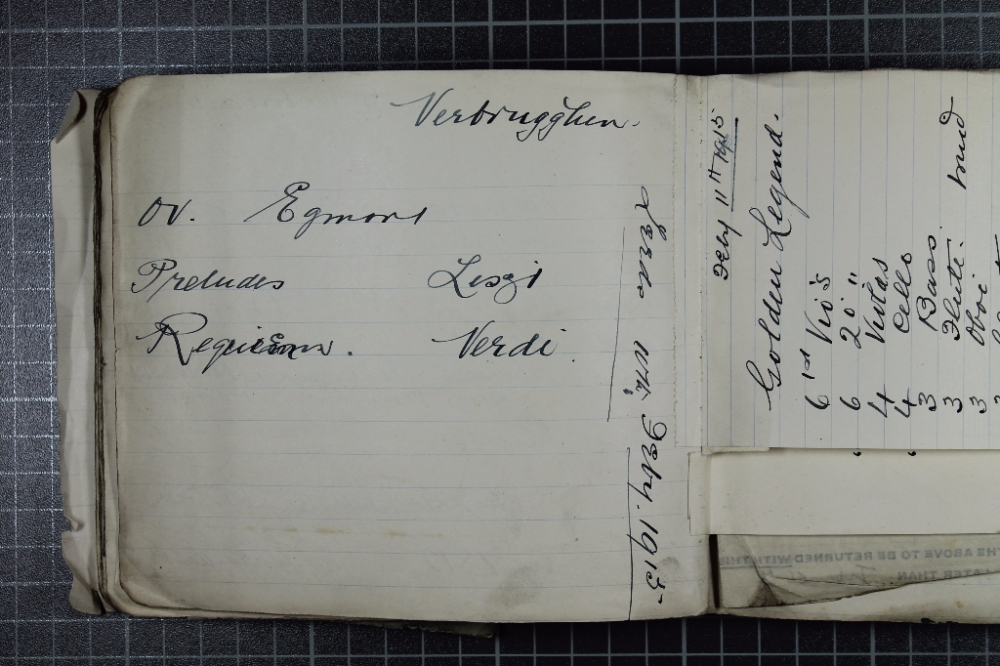 Verbrugghen.
Ov. Egmont
Preludes Leszt
Requiem. Verdi
Leeds wk; Feby. 1915
Feby 11th 1915
Golden Legend.
6 1st Vio's
6 2o "
4 Violas
4 Cello
3 Bass
3 Flute.
3 Oboi
THE ABOVE TO BE RETURNED WITH THIS
LATER THAN